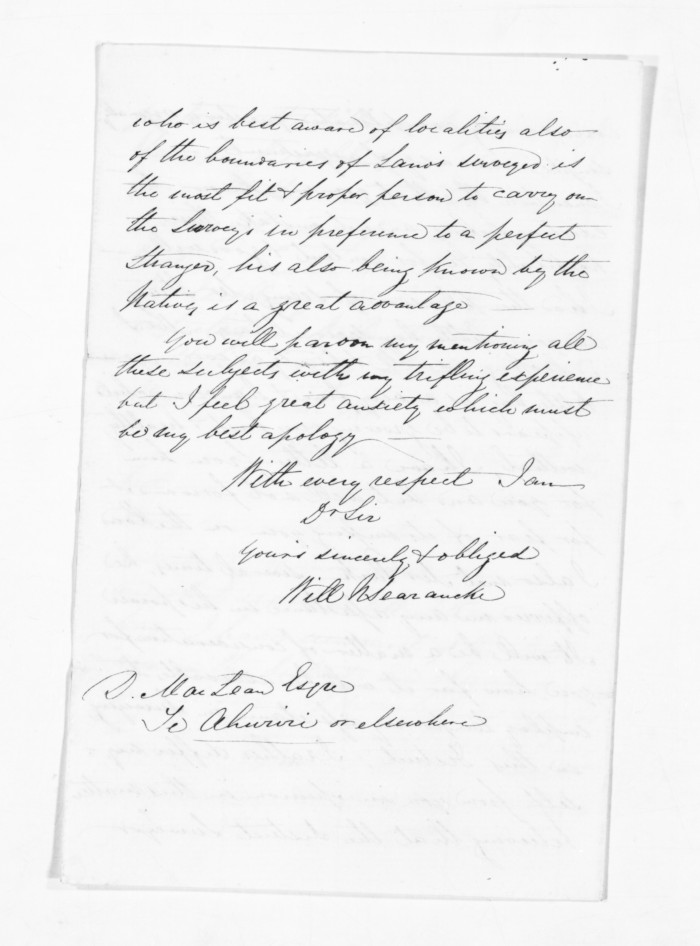 who is best aware of localities also
of the boundaries of Lands surveyed is
the most fit & proper person to carry on
the Surveys in preference to a perfect
Stranger, his also being known by the
Natives, is a great advantage —
You will pardon my mentioning all
these subjects with my trifling experience
but I feel great anxiety which must
be my best apology —
With every respect I am
Dr Sir
Yours sincerely & obliged
Will N Searancke
D. MacLean Esqre
Te Ahuriri or elsewhere